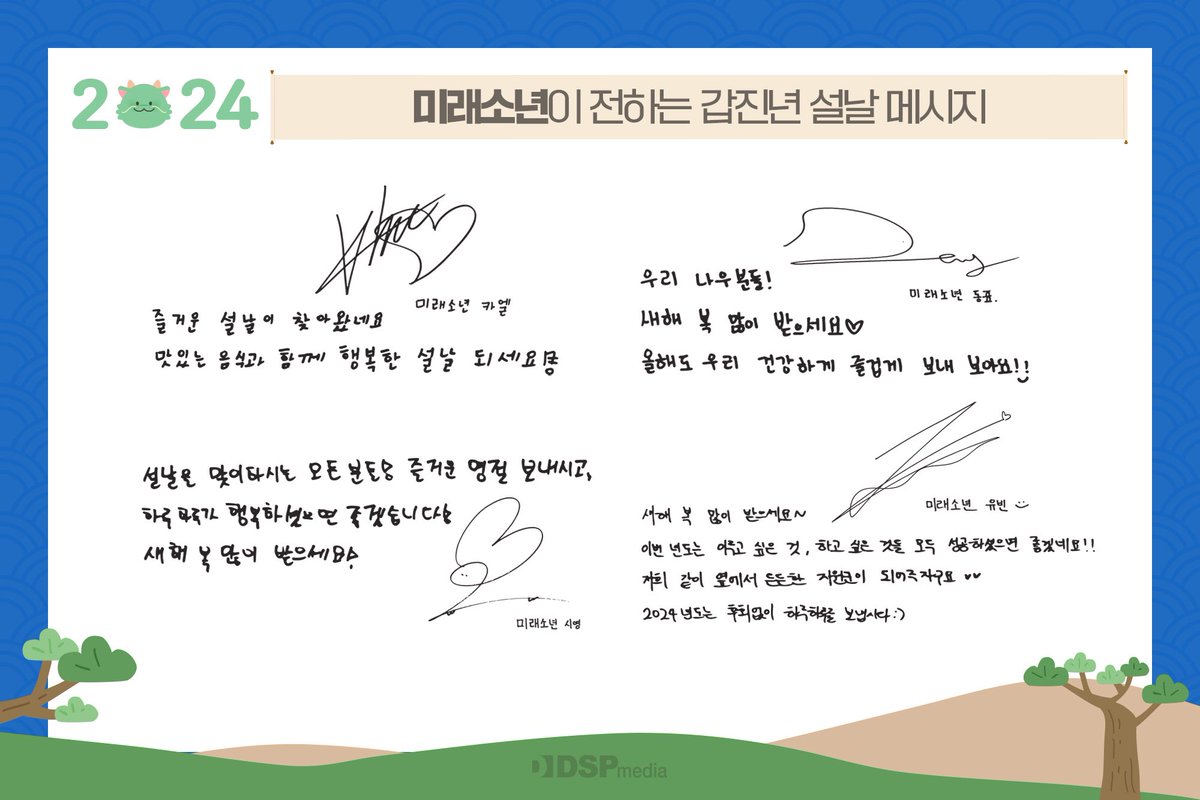 2024
미래소년이 전하는 갑진년 설날 메시지
미래소년 카엘
즐거운 설날이 찾아왔네요
맛있는 음식과 함께 행복한 설날 되세요
미래소년 동표.
우리 나우분들!
새해 복 많이 받으세요♡
올해도 우리 건강하게 즐겁게 보내 보아요!!
설날을 맞이하시는 모든 분들 즐거운 명절 보내시고,
하루하루가 행복하셨으면 좋겠습니다!
새해 복 많이 받으세요!
미래소년 시영
미래소년 유빈
새해 복 많이 받으세요~
이번 년도는 이루고 싶은 것, 하고 싶은 것들 모두 성공하셨으면 좋겠네요!!
저희 같이 옆에서 든든한 지원군이 되어주자구요 ♥♥
2024년도는 후회없이 하루하루를 보냅시다 :)
DSPmedia